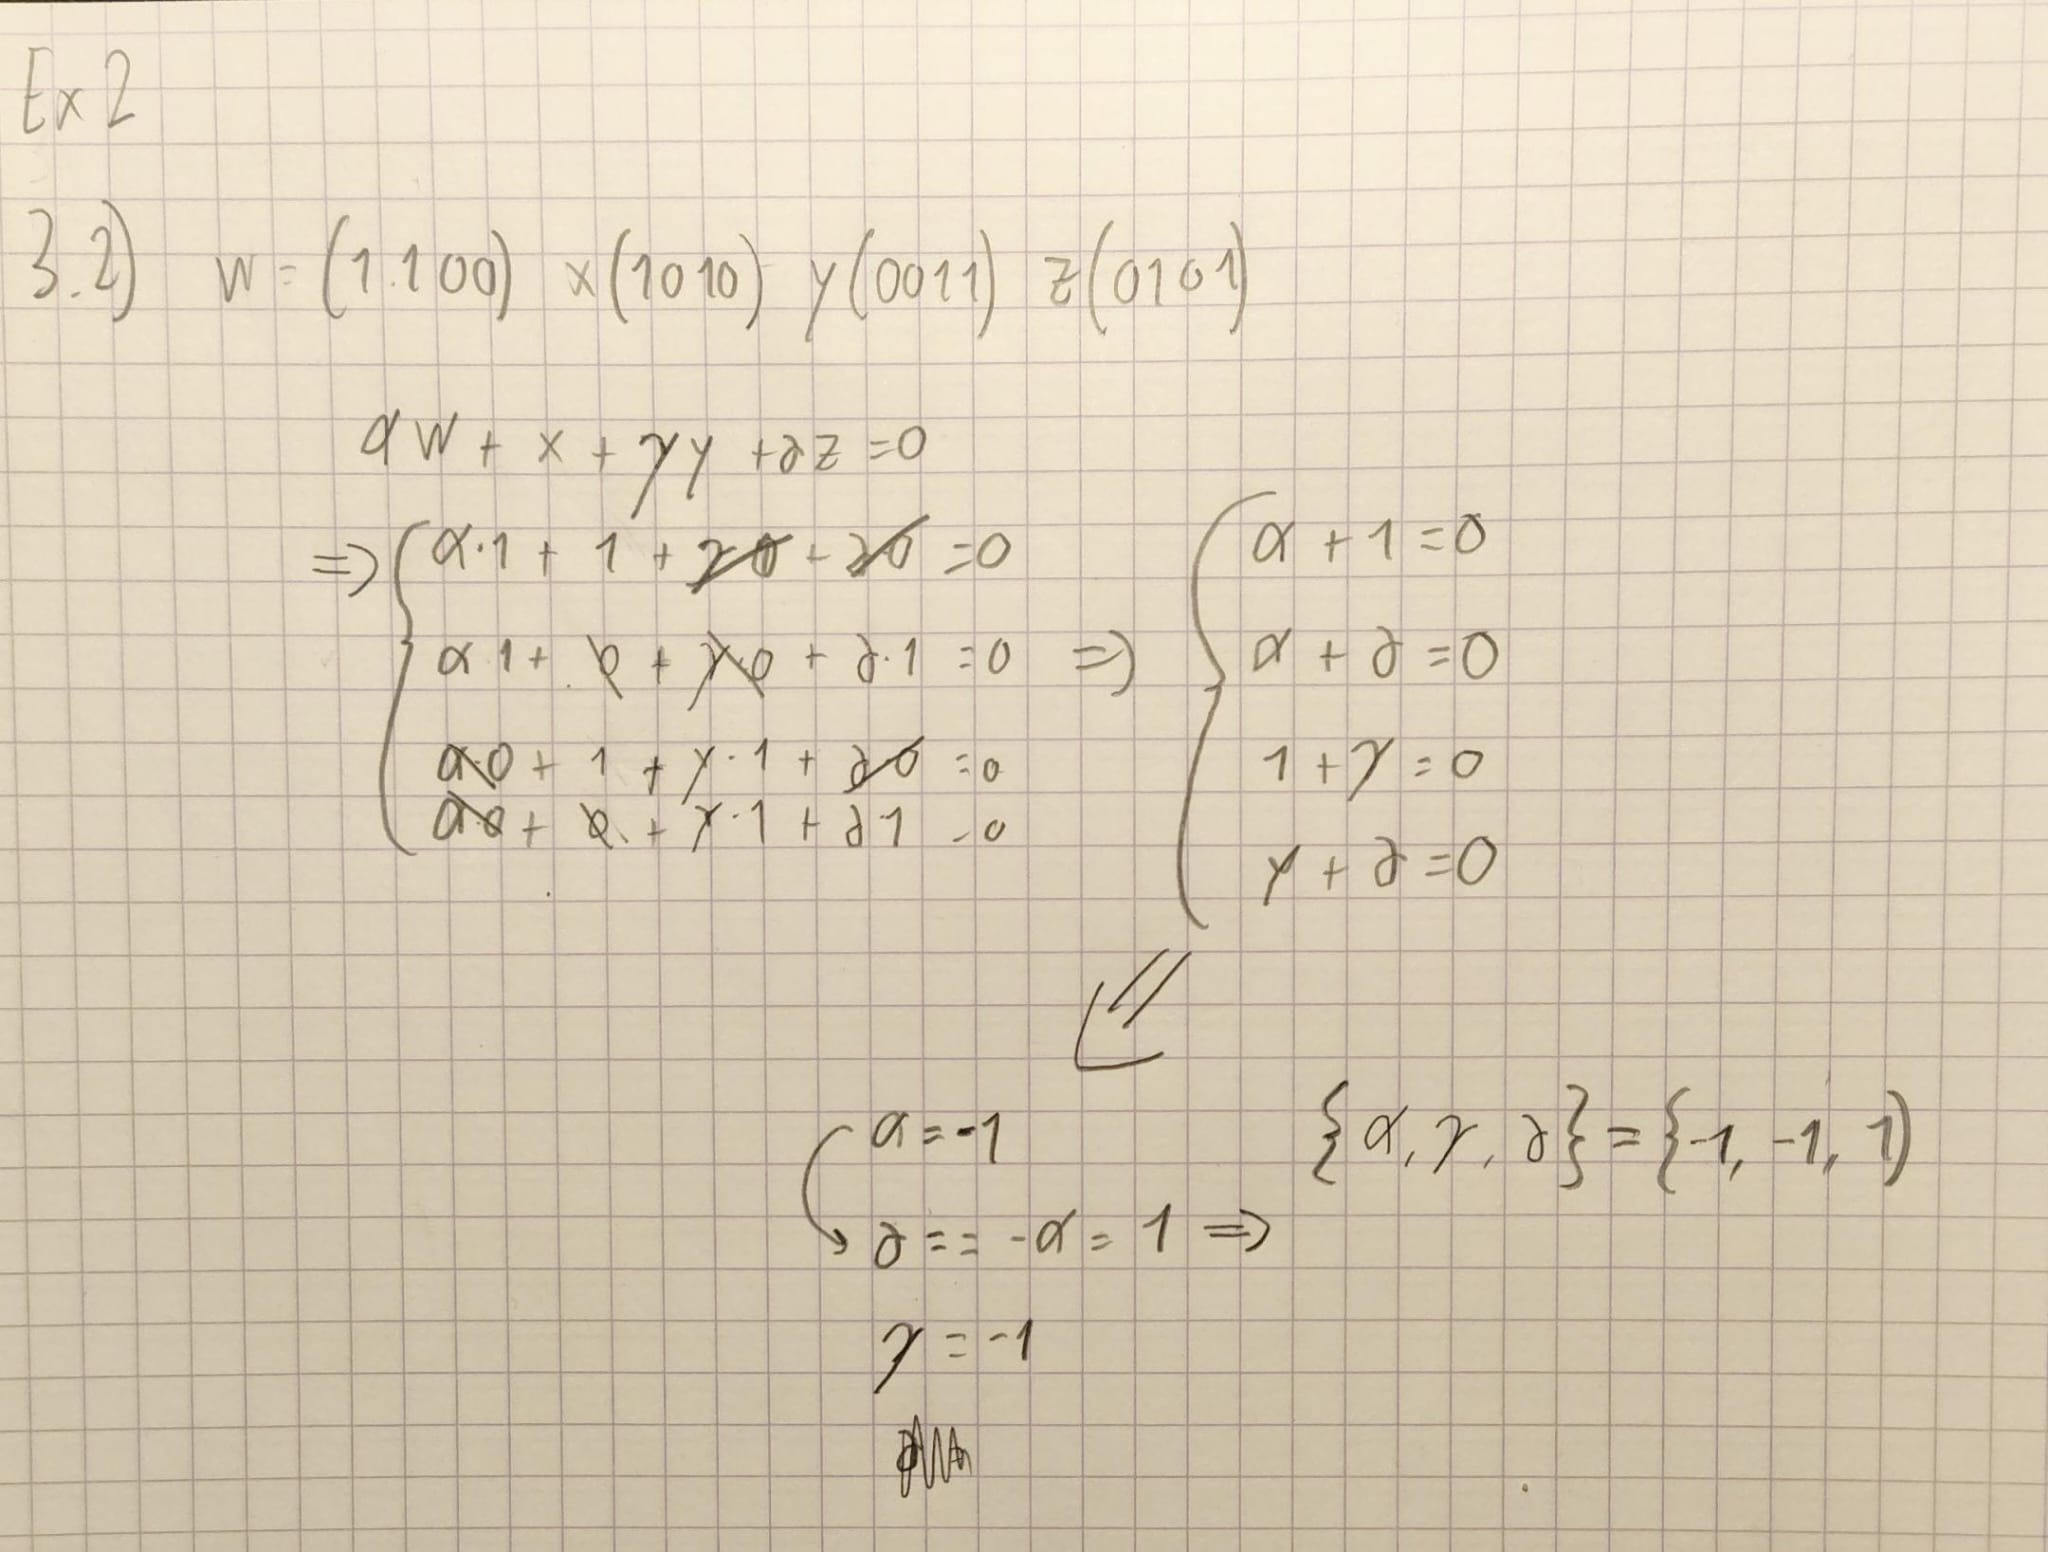 Ex 2
3.2) w = (1.100) x(1010) y(0011) z(0101)
αw + x + γy + ∂z = 0
=> { α·1 + 1 + γ0 + ∂0 = 0
α1 + 0 + γ·0 + ∂·1 = 0 =>
α·0 + 1 + γ·1 + ∂0 = 0
α·0 + 0 + γ·1 + ∂1 = 0
{ α + 1 = 0
α + ∂ = 0
1 + γ = 0
γ + ∂ = 0
α = -1
∂ = = -α = 1 =>
γ = -1
{α, γ, ∂} = {-1, -1, 1)